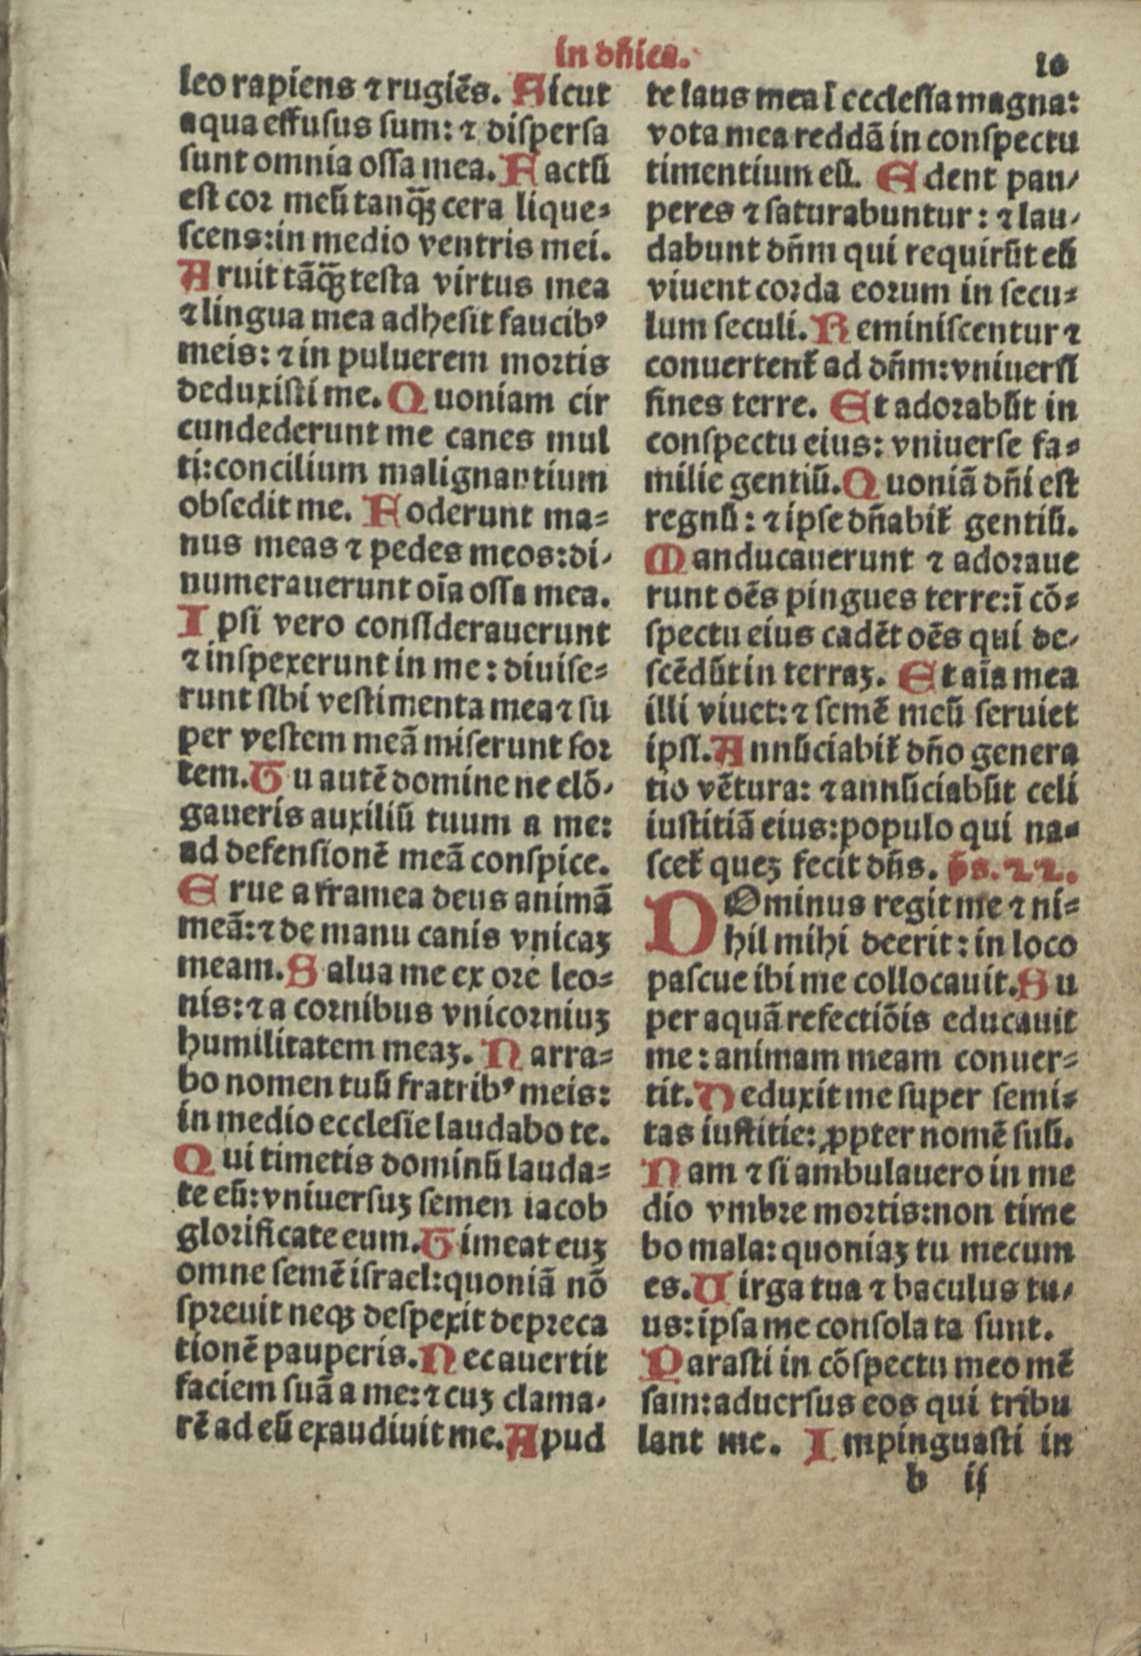 in dñica.
10
leo rapiens ⁊ rugiēs. Sicut
aqua effusus sum: ⁊ dispersa
sunt omnia ossa mea. Factū
est cor meū tanq̄ȝ cera lique⸗
scens: in medio ventris mei.
Aruit tāq̄ȝ testa virtus mea
⁊ lingua mea adhesit faucibꝰ
meis: ⁊ in puluerem mortis
deduxisti me. Quoniam cir
cundederunt me canes mul
ti: concilium malignantium
obsedit me. Foderunt ma⸗
nus meas ⁊ pedes meos: di⸗
numerauerunt oīa ossa mea.
Ipsi vero considerauerunt
⁊ inspexerunt in me: diuise⸗
runt sibi vestimenta mea ⁊ su
per vestem meā miserunt sor
tem. Tu autē domine ne elō⸗
gaueris auxiliū tuum a me:
ad defensionē meā conspice.
Erue a framea deus animā
meā: ⁊ de manu canis vnicaȝ
meam. Salua me ex ore leo⸗
nis: ⁊ a cornibus vnicorniuȝ
humilitatem meaȝ. Narra⸗
bo nomen tuū fratribꝰ meis:
in medio ecclesie laudabo te.
Qui timetis dominū lauda⸗
te eū: vniuersuȝ semen iacob
glorificate eum. Timeat euȝ
omne semē israel: quoniā nō
spreuit neqȝ despexit depreca
tionē pauperis. Nec auertit
faciem suā a me: ⁊ cuȝ clama⸗
rē ad eū exaudiuit me. Apud
te laus mea ī ecclesia magna:
vota mea reddā in conspectu
timentium eū. Edent pau⸗
peres ⁊ saturabuntur: ⁊ lau⸗
dabunt dñm qui requirūt eū
viuent corda eorum in secu⸗
lum seculi. Reminiscentur ⁊
conuertent᷑ ad dñm: vniuersi
fines terre. Et adorabūt in
conspectu eius: vniuerse fa⸗
milie gentiū. Quoniā dñi est
regnū: ⁊ ipse dñabit᷑ gentiū.
Manducauerunt ⁊ adoraue
runt oēs pingues terre: ī cō⸗
spectu eius cadēt oēs qui de⸗
scēdūt in terraȝ. Et aīa mea
illi viuet: ⁊ semē meū seruiet
ipsi. Annūciabit᷑ dño genera
tio vētura: ⁊ annūciabūt celi
iustitiā eius: populo qui na⸗
scet᷑ queȝ fecit dñs. ps. 22.
DOminus regit me ⁊ ni⸗
hil mihi deerit: in loco
pascue ibi me collocauit. Su
per aquā refectiōis educauit
me: animam meam conuer⸗
tit. Deduxit me super semi⸗
tas iustitie: ꝓpter nomē suū.
Nam ⁊ si ambulauero in me
dio vmbre mortis: non time
bo mala: quoniaȝ tu mecum
es. Uirga tua ⁊ baculus tu⸗
us: ipsa me consolata sunt.
Parasti in cōspectu meo mē
sam: aduersus eos qui tribu
lant me. Impinguasti in
b ij